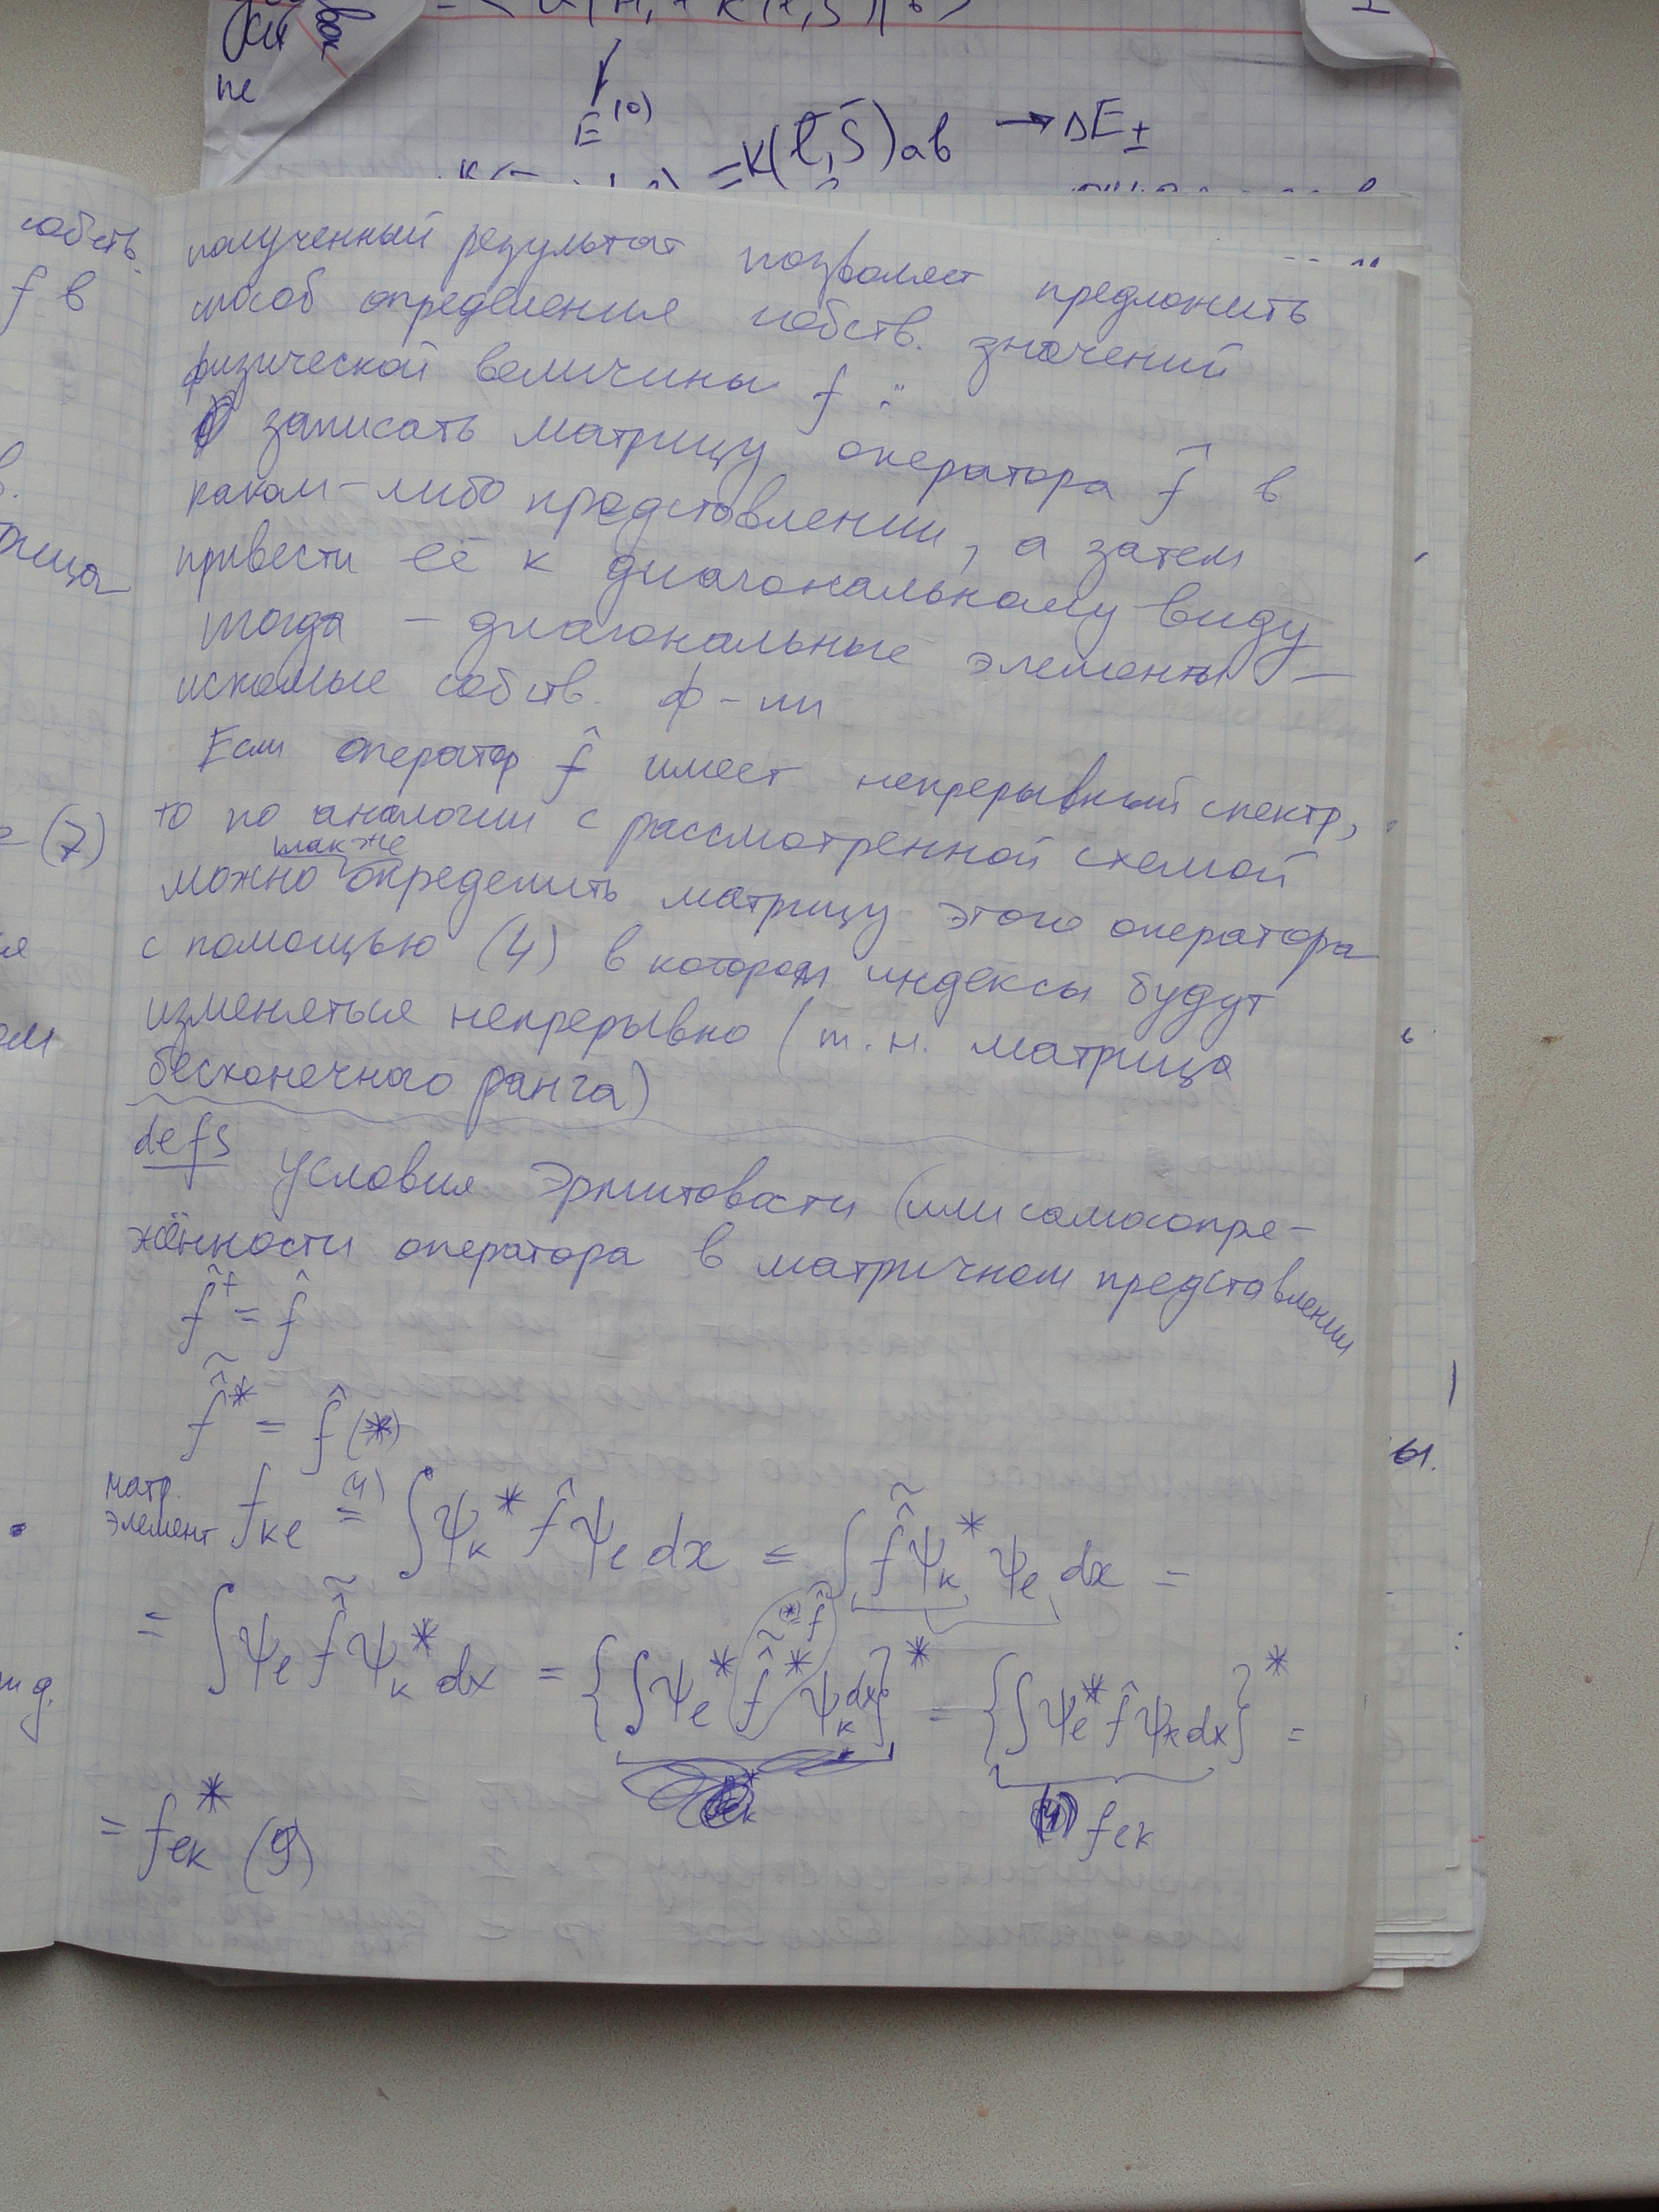 не
E⁽⁰⁾
= K(l, S)ab → ΔE±
собств.
f в
полученный результат позволяет предложить
способ определения собств. значений
физической величины f :
записать матрицу оператора f̂ в
каком-либо представлении, а затем
привести её к диагональному виду
тогда – диагональные элементы –
искомые собств. ф-ии
Если оператор f̂ имеет непрерывный спектр,
= (7)
то по аналогии с рассмотренной схемой
также
можно определить матрицу этого оператора
с помощью (4) в котором индексы будут
изменяться непрерывно (т.н. матрица
бесконечного ранга)
def5 Условия Эрмитовости (или самосопря-
жённости оператора в матричном представлении
f̂⁺ = f̂
f̂̃* = f̂ (*)
матр. элемент f_kl =⁽⁴⁾ ∫ψ_k* f̂ ψ_l dx = ∫ f̂̃ ψ_k* ψ_l dx =
(*) = f̂
= ∫ψ_l f̂̃ ψ_k* dx = {∫ψ_l* f̂̃* ψ_k dx}* = {∫ψ_l* f̂ ψ_k dx}* =
(4) f_lk
= f_lk* (9)